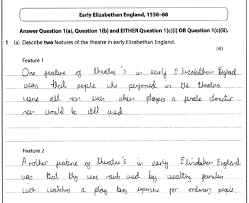 Early Elizabethan England, 1558–88
Answer Question 1(a), Question 1(b) and EITHER Question 1(c)(i) OR Question 1(c)(ii).
1 (a) Describe two features of the theatre in early Elizabethan England.
(4)
Feature 1
One feature of theatre's in early Elizabethan England
was that people who performed in the theatre
were all men even when players a female
men would be still used.
Feature 2
Another feature of theatre's in early Elizabethan England
was that they were used by wealthy families
watching a play being expensive for ordinary people.